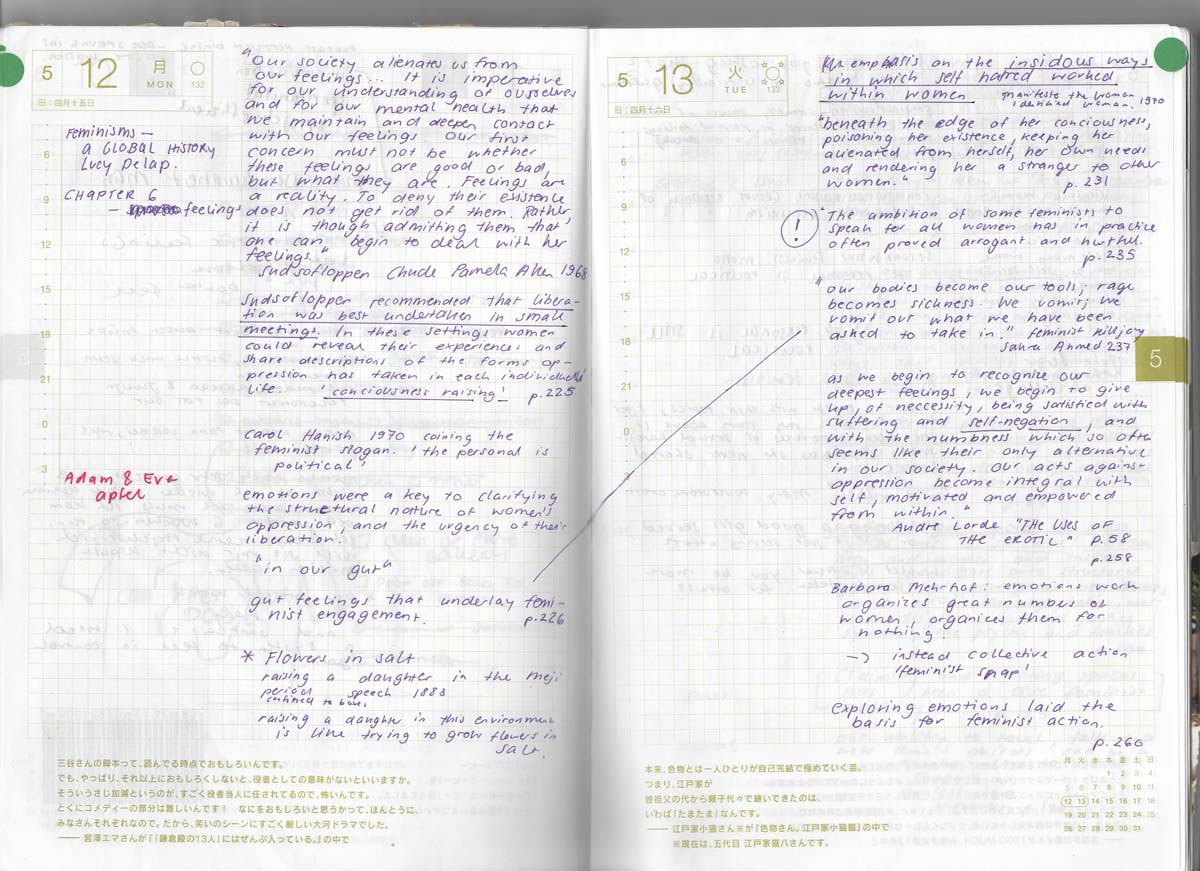 5 12 月 MON 132
旧：四月十五日
Feminisms —
a GLOBAL HISTORY
Lucy Delap.
CHAPTER 6
— feelings
Adam & Eve
apfel
6
9
12
15
18
21
0
3
"Our society alienates us from
our feelings... It is imperative
for our understanding of ourselves
and for our mental health that
we maintain and deepen contact
with our feelings Our first
concern must not be whether
these feelings are good or bad,
but what they are. Feelings are
a reality. To deny their existence
does not get rid of them. Rather,
it is though admitting them that
one can begin to deal with her
feelings."
Sudsofloppen Chude Pamela Allen 1968
Sudsofloppen recommended that libera-
tion was best undertaken in small
meetings. In these settings women
could reveal their experiences and
share descriptions of the forms op-
pression has taken in each individuals
life. 'conciousness raising' p.225
Carol Hanish 1970 coining the
feminist slogan. 'the personal is
political'
emotions were a key to clarifying
the structural nature of women's
oppression, and the urgency of their
liberation.
"in our gut"
gut feelings that underlay femi-
nist engagement. p.226
* Flowers in salt
raising a daughter in the Meji
period speech 1883
confined to boxes
raising a daughter in this environment
is like trying to grow flowers in
salt.
三谷さんの脚本って、読んでる時点でおもしろいんです。
でも、やっぱり、それ以上におもしろくしないと、役者としての意味がないといいますか。
そういうさじ加減というのが、すごく役者当人に任されてるので、怖いんです。
とくにコメディーの部分は難しいんです！ なにをおもしろいと思うかって、ほんとうに、
みなさんそれぞれなので。だから、笑いのシーンにすごく厳しい大河ドラマでした。
―― 宮澤エマさんが『「鎌倉殿の13人」にはぜんぶ入っている。』の中で
5 13 火 TUE 133
旧：四月十六日
6
9
12
15
18
21
0
3
emphasis on the insidious ways
in which self hatred worked
within women manifesto the woman
identified woman. 1970
"beneath the edge of her conciousness,
poisoning her existence, keeping her
alienated from herself, her own needs
and rendering her a stranger to other
women."
p. 231
!
"The ambition of some feminists to
speak for all women has in practice
often proved arrogant and hurtful.
p. 235
"our bodies become our tools; rage
becomes sickness. We vomit; we
vomit out what we have been
asked to take in." feminist killjoy
Sahra Ahmed 237
as we begin to recognize our
deepest feelings, we begin to give
up, of neccessity, being satisfied with
suffering and self-negation, and
with the numbness which so often
seems like their only alternative
in our society. Our acts against
oppression become integral with
self, motivated and empowered
from within."
Andre Lorde "THE USES OF
THE EROTIC" p.58
p.258
Barbara Mehrhof: emotions work
organizes great number of
women, organices them for
nothing.
-> instead collective action
'feminist snap'
exploring emotions laid the
basis for feminist action.
p.260
5
本来、色物とは一人ひとりが自己完結で極めていく芸。
つまり、江戸家が
曽祖父の代から親子代々で継いできたのは、
いわば「たまたま」なんです。
―― 江戸家小猫さん※が『色物さん。江戸家小猫篇』の中で
※現在は、五代目 江戸家猫八さんです。
月 火 水 木 金 土 日
1 2 3 4
5 6 7 8 9 10 11
12 13 14 15 16 17 18
19 20 21 22 23 24 25
26 27 28 29 30 31